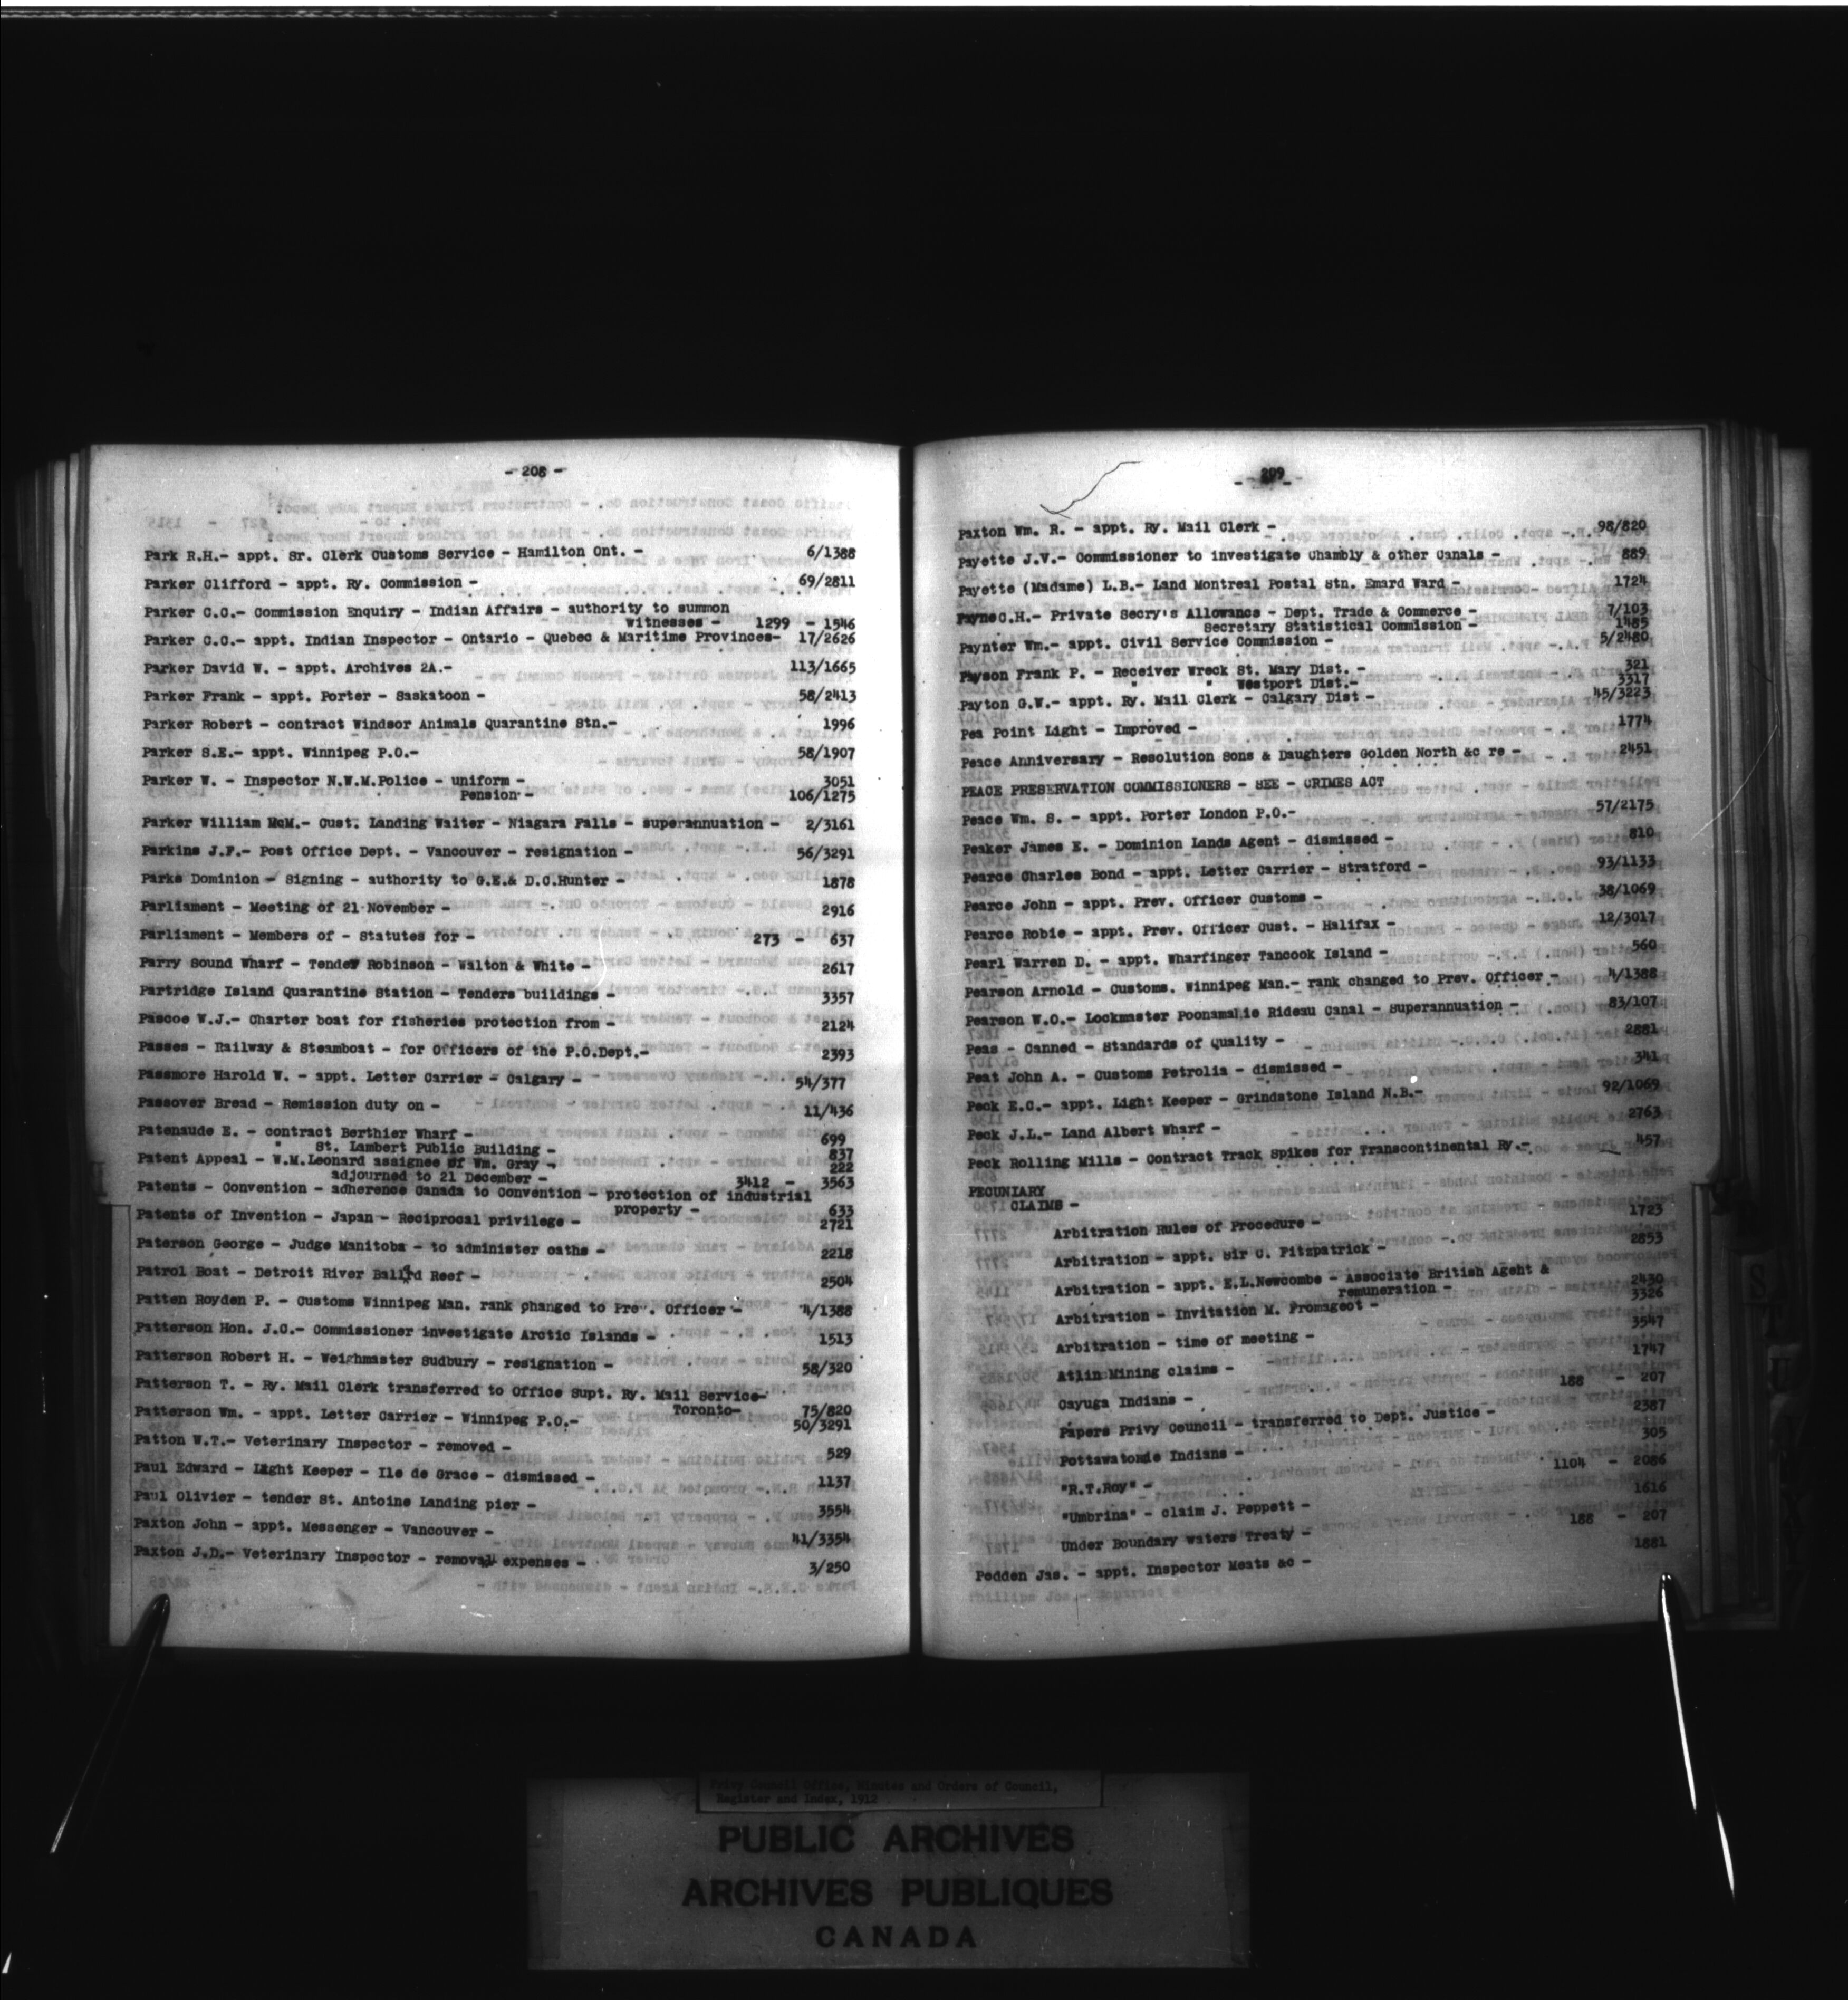 - 208 -
Park R.H.- appt. Sr. Clerk Customs Service - Hamilton Ont. - 6/1388
Parker Clifford - appt. Ry. Commission - 69/2811
Parker C.C.- Commission Enquiry - Indian Affairs - authority to summon
witnesses - 1299 - 1546
Parker C.C.- appt. Indian Inspector - Ontario - Quebec & Maritime Provinces- 17/2626
Parker David W. - appt. Archives 2A.- 113/1665
Parker Frank - appt. Porter - Saskatoon - 58/2413
Parker Robert - contract Windsor Animals Quarantine Stn.- 1996
Parker S.E.- appt. Winnipeg P.O.- 58/1907
Parker W. - Inspector N.W.M.Police - uniform - 3051
Pension - 106/1275
Parker William McM.- Cust. Landing Waiter - Niagara Falls - superannuation - 2/3161
Parkins J.F.- Post Office Dept. - Vancouver - resignation - 56/3291
Parks Dominion - Signing - authority to G.E.& D.C.Hunter - 1878
Parliament - Meeting of 21 November - 2916
Parliament - Members of - Statutes for - 273 - 637
Parry Sound Wharf - Tender Robinson - Walton & White - 2617
Partridge Island Quarantine Station - Tenders buildings - 3357
Pascoe W.J.- Charter boat for fisheries protection from - 2124
Passes - Railway & Steamboat - for Officers of the P.O.Dept.- 2393
Passmore Harold W. - appt. Letter Carrier - Calgary - 54/377
Passover Bread - Remission duty on - 11/436
Patenaude E. - contract Berthier Wharf - 699
" St. Lambert Public Building - 837
Patent Appeal - W.M.Leonard assignee of Wm. Gray - 222
adjourned to 21 December - 3412 - 3563
Patents - Convention - adherence Canada to Convention - protection of industrial
property - 633
Patents of Invention - Japan - Reciprocal privilege - 2721
Paterson George - Judge Manitoba - to administer oaths - 2218
Patrol Boat - Detroit River Ballrd Reef - 2504
Patten Royden P. - Customs Winnipeg Man. rank changed to Prev. Officer - 4/1388
Patterson Hon. J.C.- Commissioner investigate Arctic Islands - 1513
Patterson Robert H. - Weighmaster Sudbury - resignation - 58/320
Patterson T. - Ry. Mail Clerk transferred to Office Supt. Ry. Mail Service-
Toronto- 75/820
Patterson Wm. - appt. Letter Carrier - Winnipeg P.O.- 50/3291
Patton W.T.- Veterinary Inspector - removed - 529
Paul Edward - Light Keeper - Ile de Grace - dismissed - 1137
Paul Olivier - tender St. Antoine Landing pier - 3554
Paxton John - appt. Messenger - Vancouver - 41/3354
Paxton J.D.- Veterinary Inspector - removal expenses - 3/250
- 209 -
Paxton Wm. R. - appt. Ry. Mail Clerk - 98/820
Payette J.V.- Commissioner to investigate Chambly & other Canals - 889
Payette (Madame) L.B.- Land Montreal Postal Stn. Emard Ward - 1724
Payne C.H.- Private Secry's Allowance - Dept. Trade & Commerce - 7/103
Secretary Statistical Commission - 1485
Paynter Wm.- appt. Civil Service Commission - 5/2480
Payson Frank P. - Receiver Wreck St. Mary Dist. - 321
" " Westport Dist.- 3317
Payton G.W.- appt. Ry. Mail Clerk - Calgary Dist - 45/3223
Pea Point Light - Improved - 1774
Peace Anniversary - Resolution Sons & Daughters Golden North &c re - 2451
PEACE PRESERVATION COMMISSIONERS - SEE - CRIMES ACT
Peace Wm. S. - appt. Porter London P.O.- 57/2175
Peaker James E. - Dominion Lands Agent - dismissed - 810
Pearce Charles Bond - appt. Letter Carrier - Stratford - 93/1133
Pearce John - appt. Prev. Officer Customs - 38/1069
Pearce Robie - appt. Prev. Officer Cust. - Halifax - 12/3017
Pearl Warren D. - appt. Wharfinger Tancook Island - 560
Pearson Arnold - Customs. Winnipeg Man.- rank changed to Prev. Officer - 4/1388
Pearson W.O.- Lockmaster Poonamalie Rideau Canal - Superannuation - 83/107
Peas - Canned - Standards of Quality - 2881
Peat John A. - Customs Petrolia - dismissed - 341
Peck E.C.- appt. Light Keeper - Grindstone Island N.B.- 92/1069
Peck J.L.- Land Albert Wharf - 2763
Peck Rolling Mills - Contract Track Spikes for Transcontinental Ry.- 457
PECUNIARY
CLAIMS -
Arbitration Rules of Procedure - 1723
Arbitration - appt. Sir C. Fitzpatrick - 2853
Arbitration - appt. E.L.Newcombe - Associate British Agent &
remuneration - 2430
Arbitration - Invitation M. Fromageot - 3326
Arbitration - time of meeting - 3547
Atlin Mining claims - 1747
Cayuga Indians - 188 - 207
Papers Privy Council - transferred to Dept. Justice - 2387
Pottawatomie Indians - 305
"R.T.Roy" - 1104 - 2086
"Umbrina" - claim J. Peppett - 1616
Under Boundary waters Treaty - 188 - 207
Pedden Jas. - appt. Inspector Meats &c - 1881
Privy Council Office, Minutes and Orders of Council,
Register and Index, 1912
PUBLIC ARCHIVES
ARCHIVES PUBLIQUES
CANADA